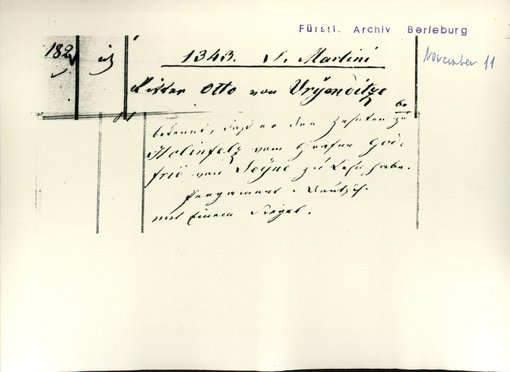 Fürstl. Archiv Berleburg
November 11
182
1343. S. Martini
Ritter Otto von
be-
kennt, daß er den Zehnten zu
vom Grafen God-
fried von Seyne zu Lehn habe.
Pergament. Deutsch.
mit einem Siegel.